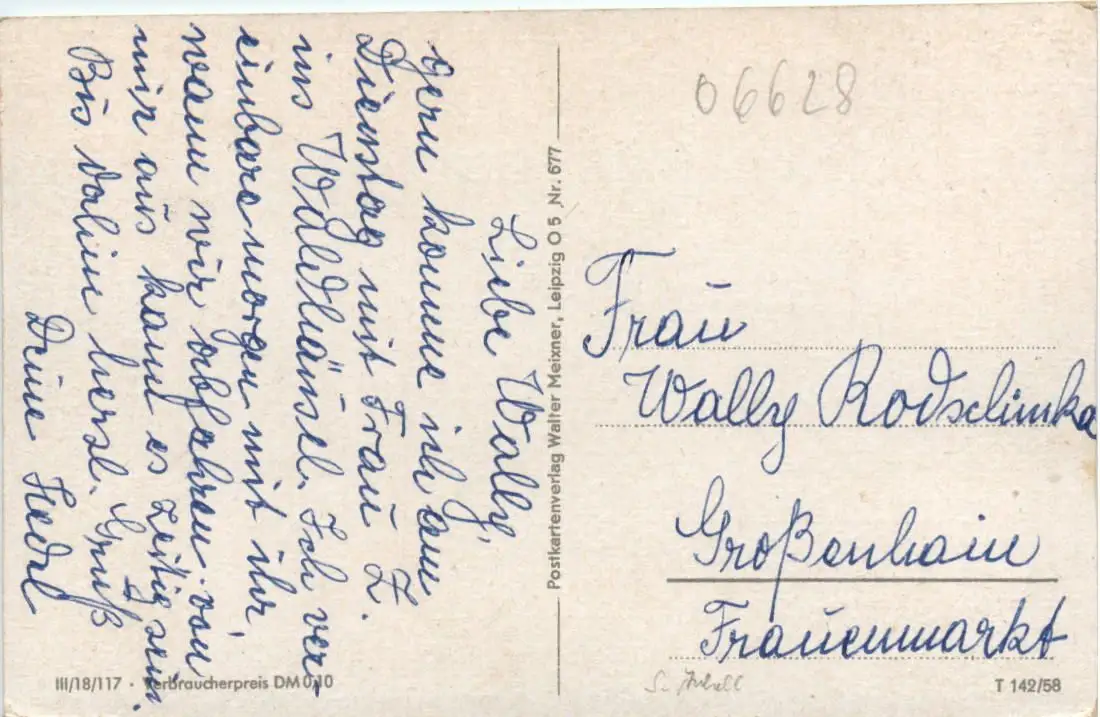 Liebe Wally,
gern komme ich am
Dienstag mit Frau Z.
ins Waldhäusel. Ich ver-
einbare morgen mit ihr,
wann wir abfahren. von
mir aus kann es zeitig sein.
Bis dahin herzl. Gruß
Deine Hedel
Postkartenverlag Walter Meixner, Leipzig O 5, Nr. 677
III/18/117 · Verbraucherpreis DM 0,10
06628
Frau
Wally Rodschinka
Großenhain
Frauenmarkt
T 142/58